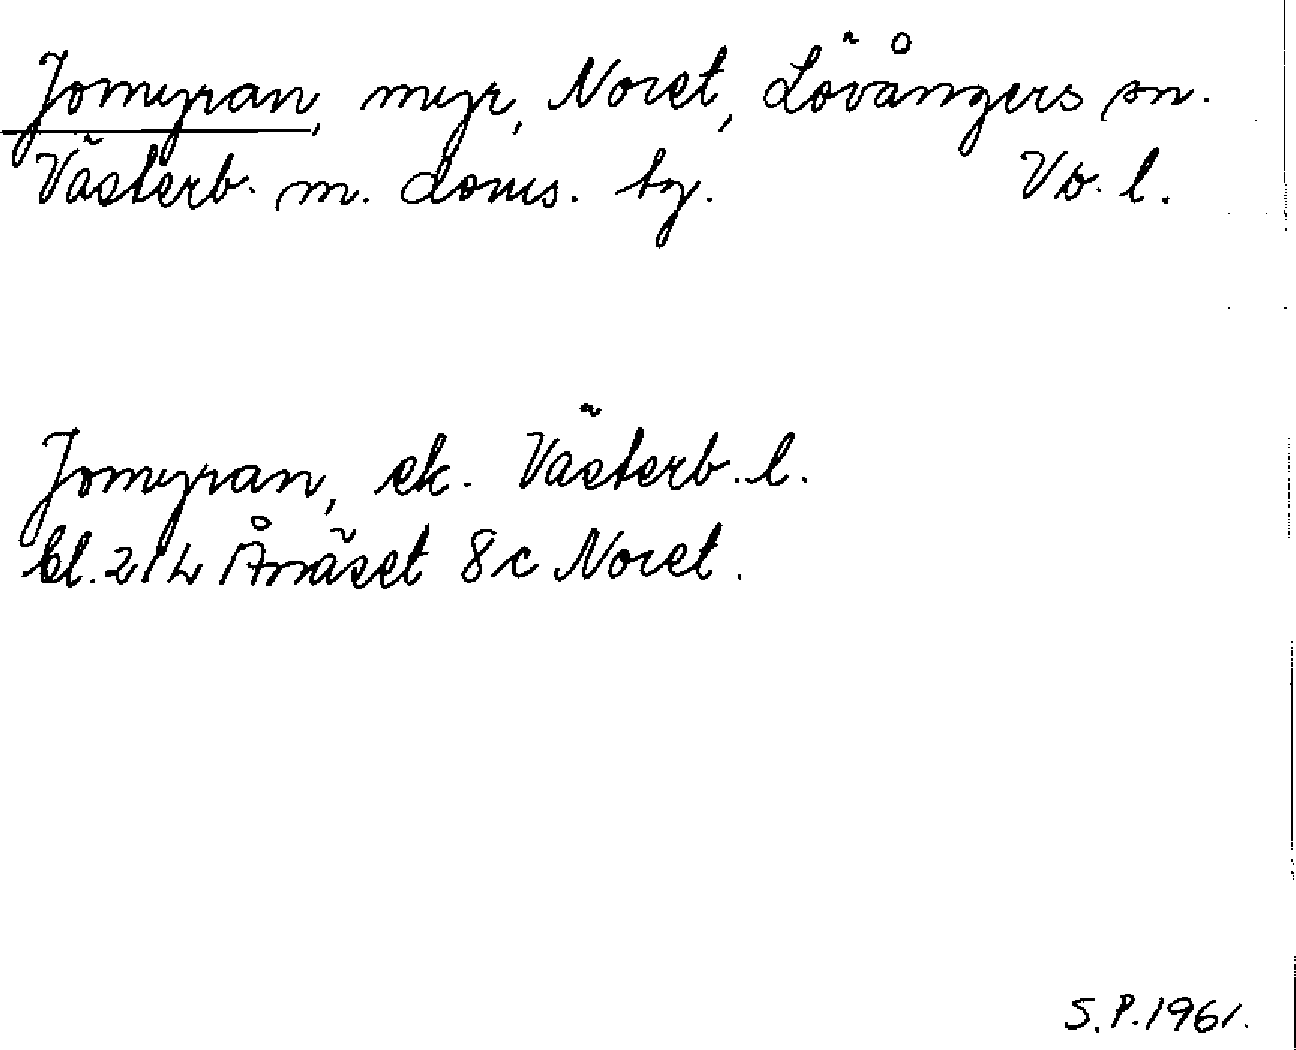 Jomyran, myr, Noret, Lövångers sn.
Västerb. m. doms. tg. Vb. l.
Jomyran, ek. Västerb. l.
bl. 214 Ånäset 8c Noret.
S.P. 1961.